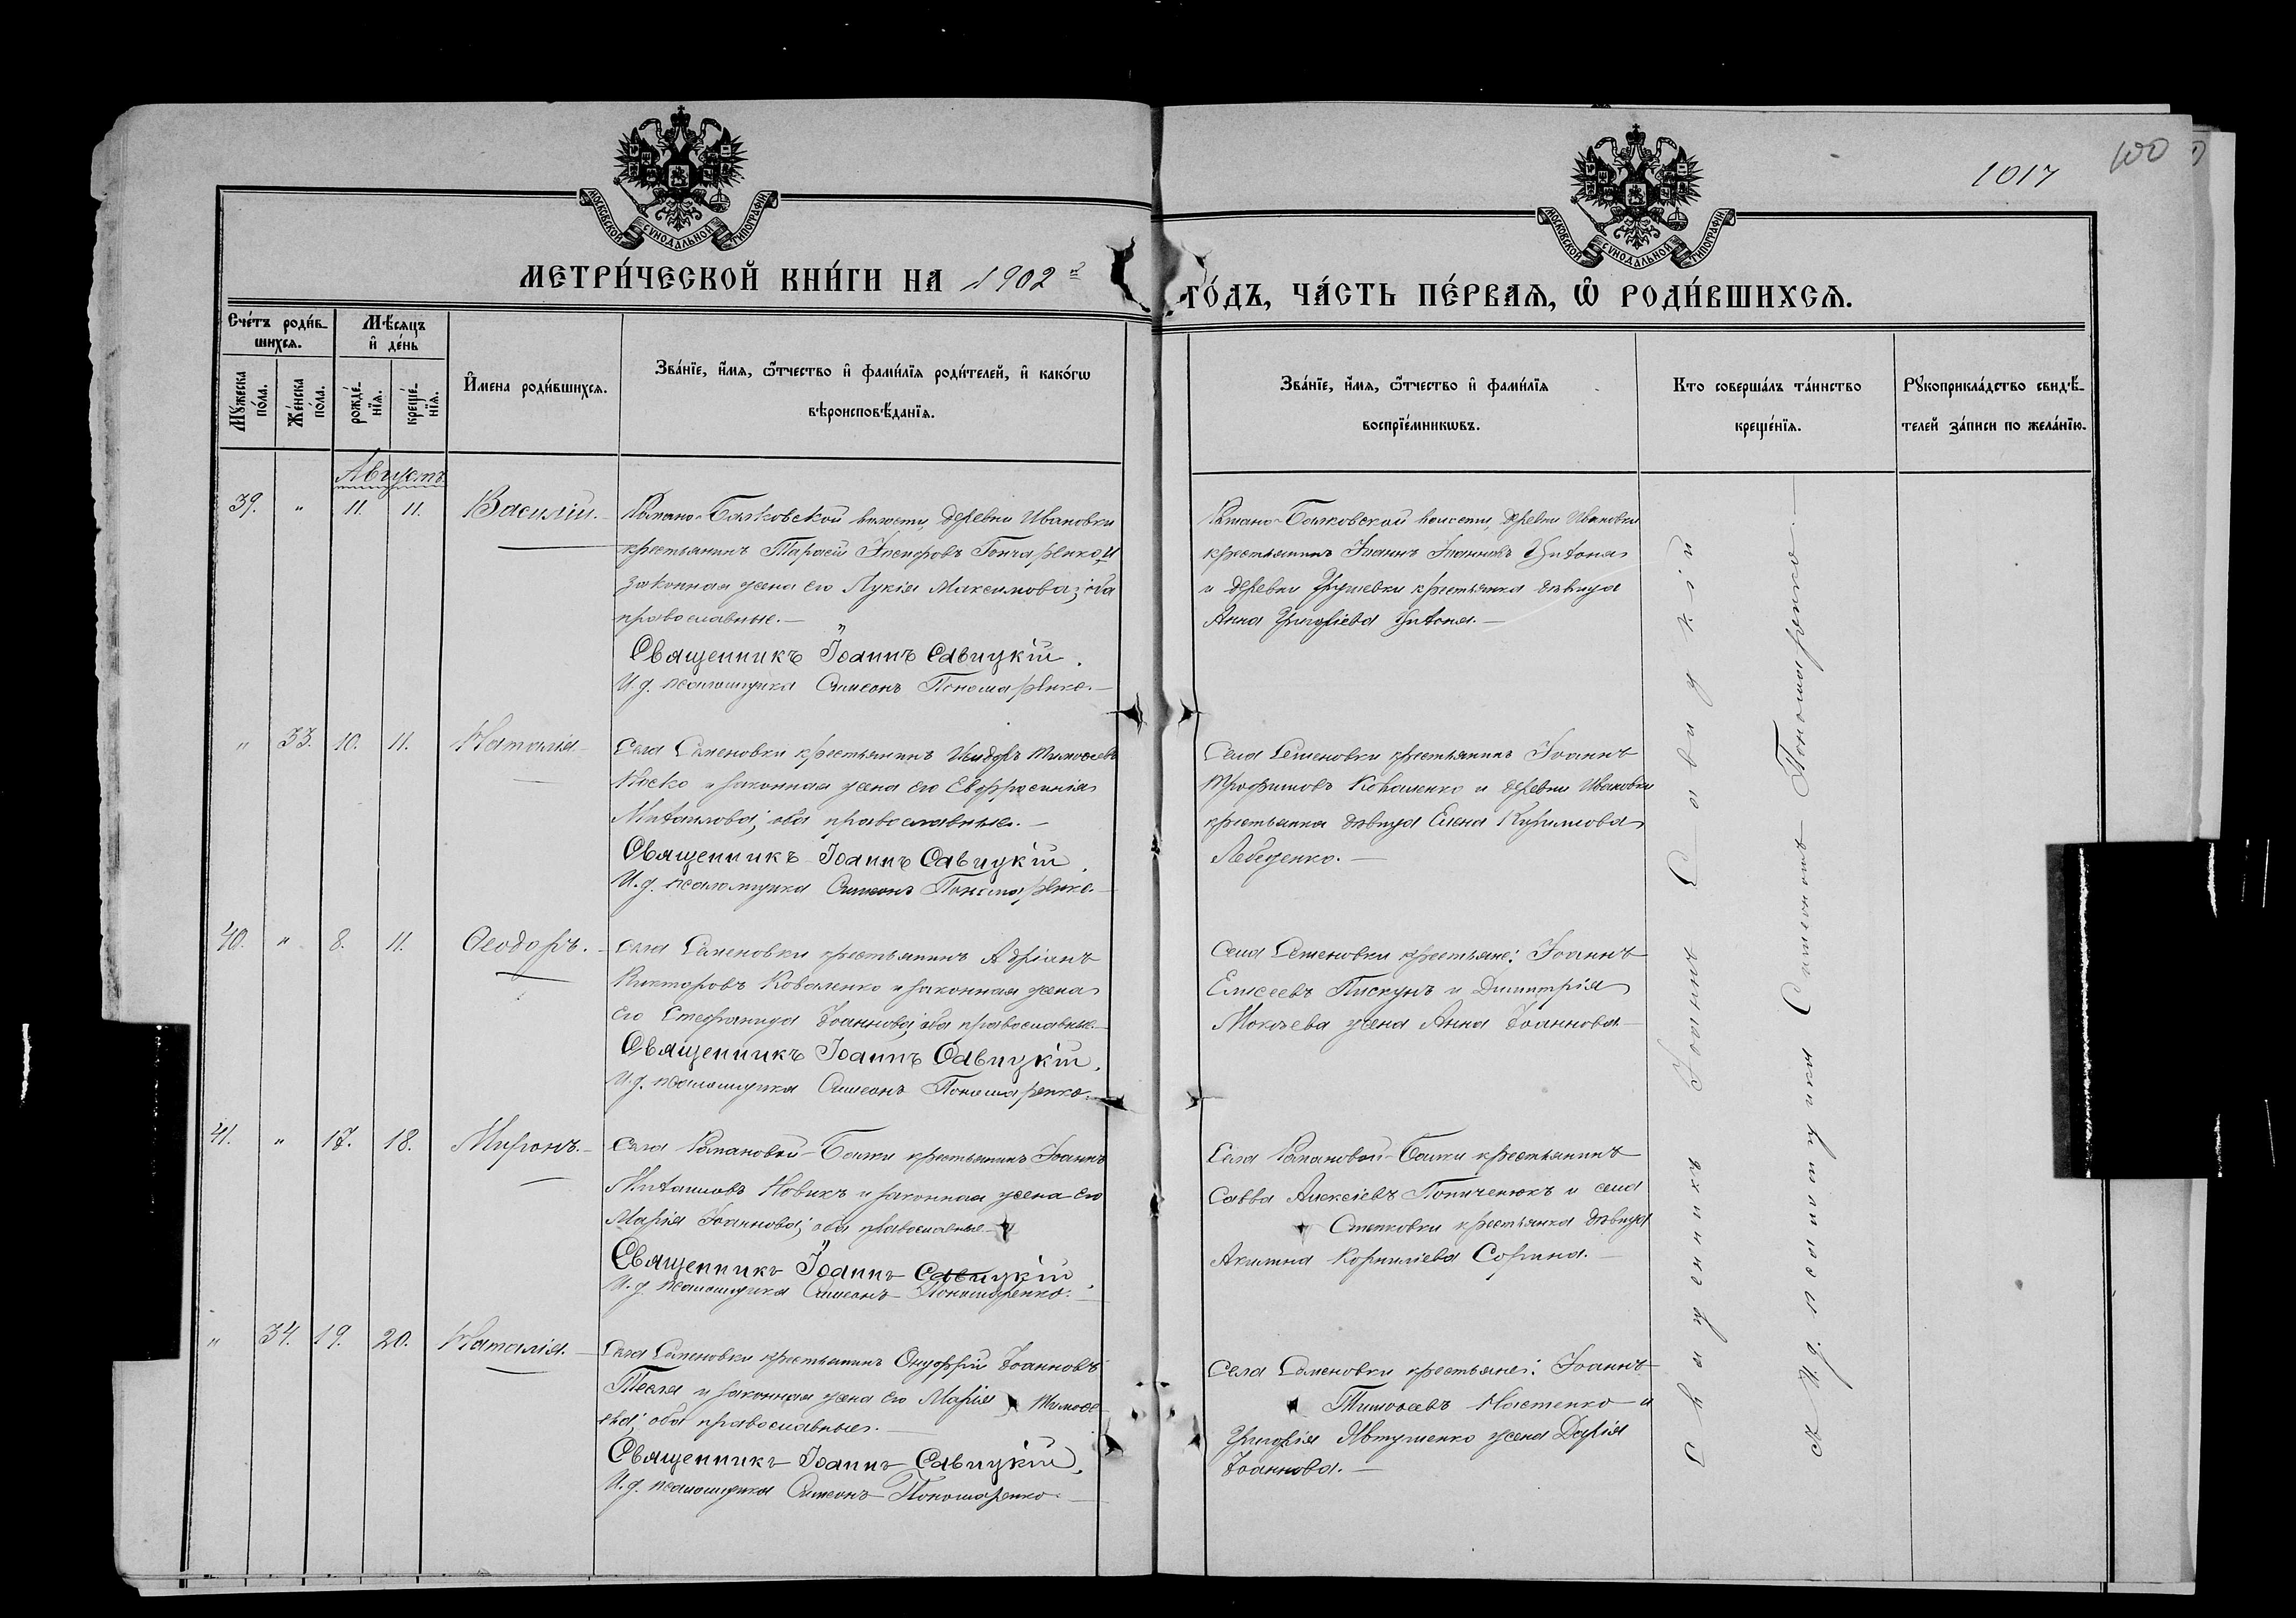 1017
100
МОСКОВСКОЙ СУНОДАЛЬНОЙ ТИПОГРАФІИ.
МОСКОВСКОЙ СУНОДАЛЬНОЙ ТИПОГРАФІИ.
МЕТРИ́ЧЕСКОЙ КНИ́ГИ НА 1902 й
ГО́ДЪ, ЧА́СТЬ ПЕ́РВАЯ, Ѡ РОДИ́ВШИХСЯ.
Сче́тъ роди́в-
шихся.
Мѣ́сяцъ
и де́нь
Му́жеска
по́ла.
Же́нска
по́ла.
рожде́-
нїя.
креще́-
нїя.
И́мена роди́вшихся.
Зва́нїе, и́мя, ѻ҆́тчество и фами́лїя роди́телей, и како́гѡ
вѣроисповѣ́данїя.
Зва́нїе, и́мя, ѻ҆́тчество и фами́лїя
воспрїе́мникѡвъ.
Кто соверша́лъ та́инство
креще́нїя.
Рꙋкоприкла́дство свидѣ́-
телей за́писи по жела́нїю.
Августъ
39. " 11. 11. Василій.
Романо-Балковской волости, деревни Ивановки
крестьянинъ Тарасій Гончаренко и
законная жена его Лукія Максимова; оба
православные.
Священникъ Іоаннъ Савицкій.
И. д. псаломщика Симеонъ Пономаренко.
Романо-Балковской волости, деревни Ивановки
крестьянинъ Іоаннъ Іоанновъ
и деревни Грушевки крестьянка дѣвица
Анна Григоріева
" 33. 10. 11. Наталія
Села Семеновки крестьянинъ Исидоръ Тимоѳеевъ
и законная жена его Евфросинія
Михаилова; оба православные.
Священникъ Іоаннъ Савицкій.
И. д. псаломщика Симеонъ Пономаренко.
Села Семеновки крестьянинъ Іоаннъ
Трофимовъ Коваленко и деревни Ивановки
крестьянка дѣвица Елена
Лебеденко.
40. " 8. 11. Ѳеодоръ.
Села Семеновки крестьянинъ Адріанъ
Викторовъ Коваленко и законная жена
его Стефанида Іоаннова; оба православные.
Священникъ Іоаннъ Савицкій.
И. д. псаломщика Симеонъ Пономаренко.
Села Семеновки крестьяне: Іоаннъ
Елисеевъ Пискунъ и Димитрія
жена Анна Іоаннова.
41. " 17. 18. Миронъ.
Села Романовой-Балки крестьянинъ Іоаннъ
Михаиловъ Новикъ и законная жена его
Марія Іоаннова; оба православные
Священникъ Іоаннъ Савицкій.
И. д. псаломщика Симеонъ Пономаренко.
Села Романовой-Балки крестьянинъ
Савва Алексіевъ и села
Степковки крестьянка дѣвица
Акилина Корниліева Сорина.
" 34. 19. 20. Наталія.
Села Семеновки крестьянинъ Онуфрій Іоанновъ
Тесля и законная жена его Марія Тимоѳе-
ева; оба православные.
Священникъ Іоаннъ Савицкій.
И. д. псаломщика Симеонъ Пономаренко.
Села Семеновки крестьяне: Іоаннъ
Тимоѳеевъ Настенко и
Григорія Явтушенко жена Дарія
Іоаннова.
Священникъ Іоаннъ Савицкій
И. д. псаломщика Симеонъ Пономаренко.